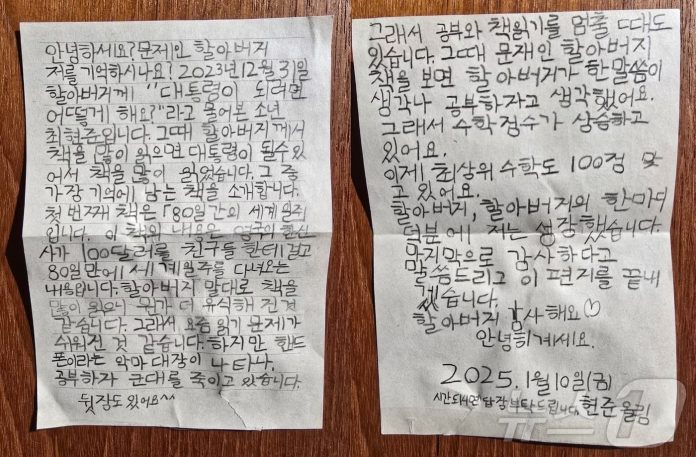 안녕하세요? 문재인 할아버지
저를 기억하시나요? 2023년12월31일
할아버지께 "대통령이 되려면
어떻게 해요?"라고 물어본 소년
최현준입니다. 그때 할아버지께서
책을 많이 읽으면 대통령이 될수 있
어서 책을 많이 읽었습니다. 그 중
가장 기억에 남는 책을 소개합니다.
첫 번째 책은 「80일간의 세계 일주
입니다. 이 책의 내용은 영국의 한신
사가 100달러를 친구들 한테 걸고
80일만에 세계일주를 다녀오는
내용입니다. 할아버지 말대로 책을
많이 읽으니 뭔가 더 유식해 진 것
같습니다. 그래서 요즘 읽기 문제가
쉬워진 것 같습니다. 하지만 핸드
폰이라는 악마 대장이 나타나,
공부하자 군대를 죽이고 있습니다.
뒷장도 있어요^^
그래서 공부와 책읽기를 멈출 때도
있습니다. 그때 문재인 할아버지
책을 보면 할아버지가 한말씀이
생각나 공부하자고 생각했어요.
그래서 수학점수가 상승하고
있어요.
이제 최상위 수학도 100점 맞
고 있어요.
할아버지, 할아버지의 한마디
덕분에 저는 성장했습니다.
마지막으로 감사하다고
말씀드리고 이 편지를 끝내
겠습니다.
할아버지 감사해요♡
안녕히계세요.
2025.1월10일(금)
시간되시면 답장부탁드립니다. 현준 올림
뉴스1